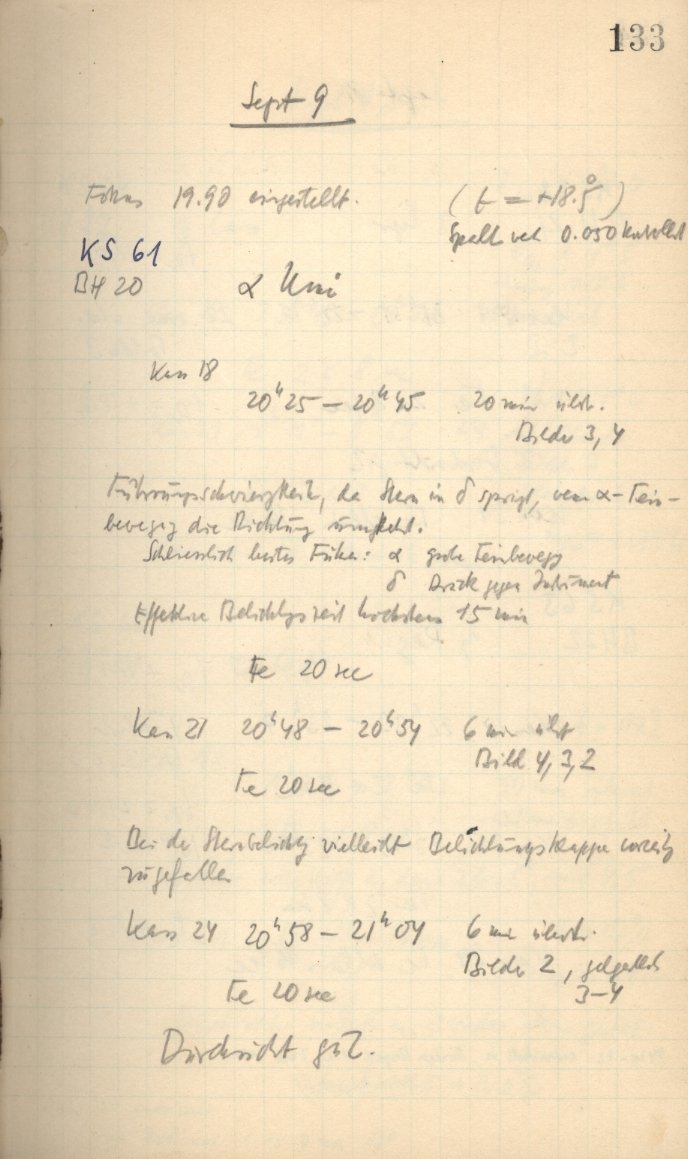 133
Sept 9
Fokus 19.90 eingestellt. (t = +18.5°)
Spalt 0.050 kontrolliert
KS 61
BH 20 α Umi
Kass 18
20h25 – 20h45 20 min
Bilder 3, 4
Führungsschwierigkeit, da Stern in δ springt, wenn α-Fein-
bewegg die Richtung umkehrt.
Schliesslich bestes Führen: α grobe Feinbewegg
δ Druck gegen Instrument
Effektive Belichtgszeit höchstens 15 min
Fe 20 sec
Kass 21 20h48 – 20h54 6 min
Bild 4, 3, 2
Fe 20 sec
Bei der Sternbelichtg vielleicht Belichtungsklappe vorzeitig
zugefallen
Kass 24 20h58 – 21h04 6 min
Bilder 2, gelegentlich
3–4
Fe 20 sec
Durchsicht gut.